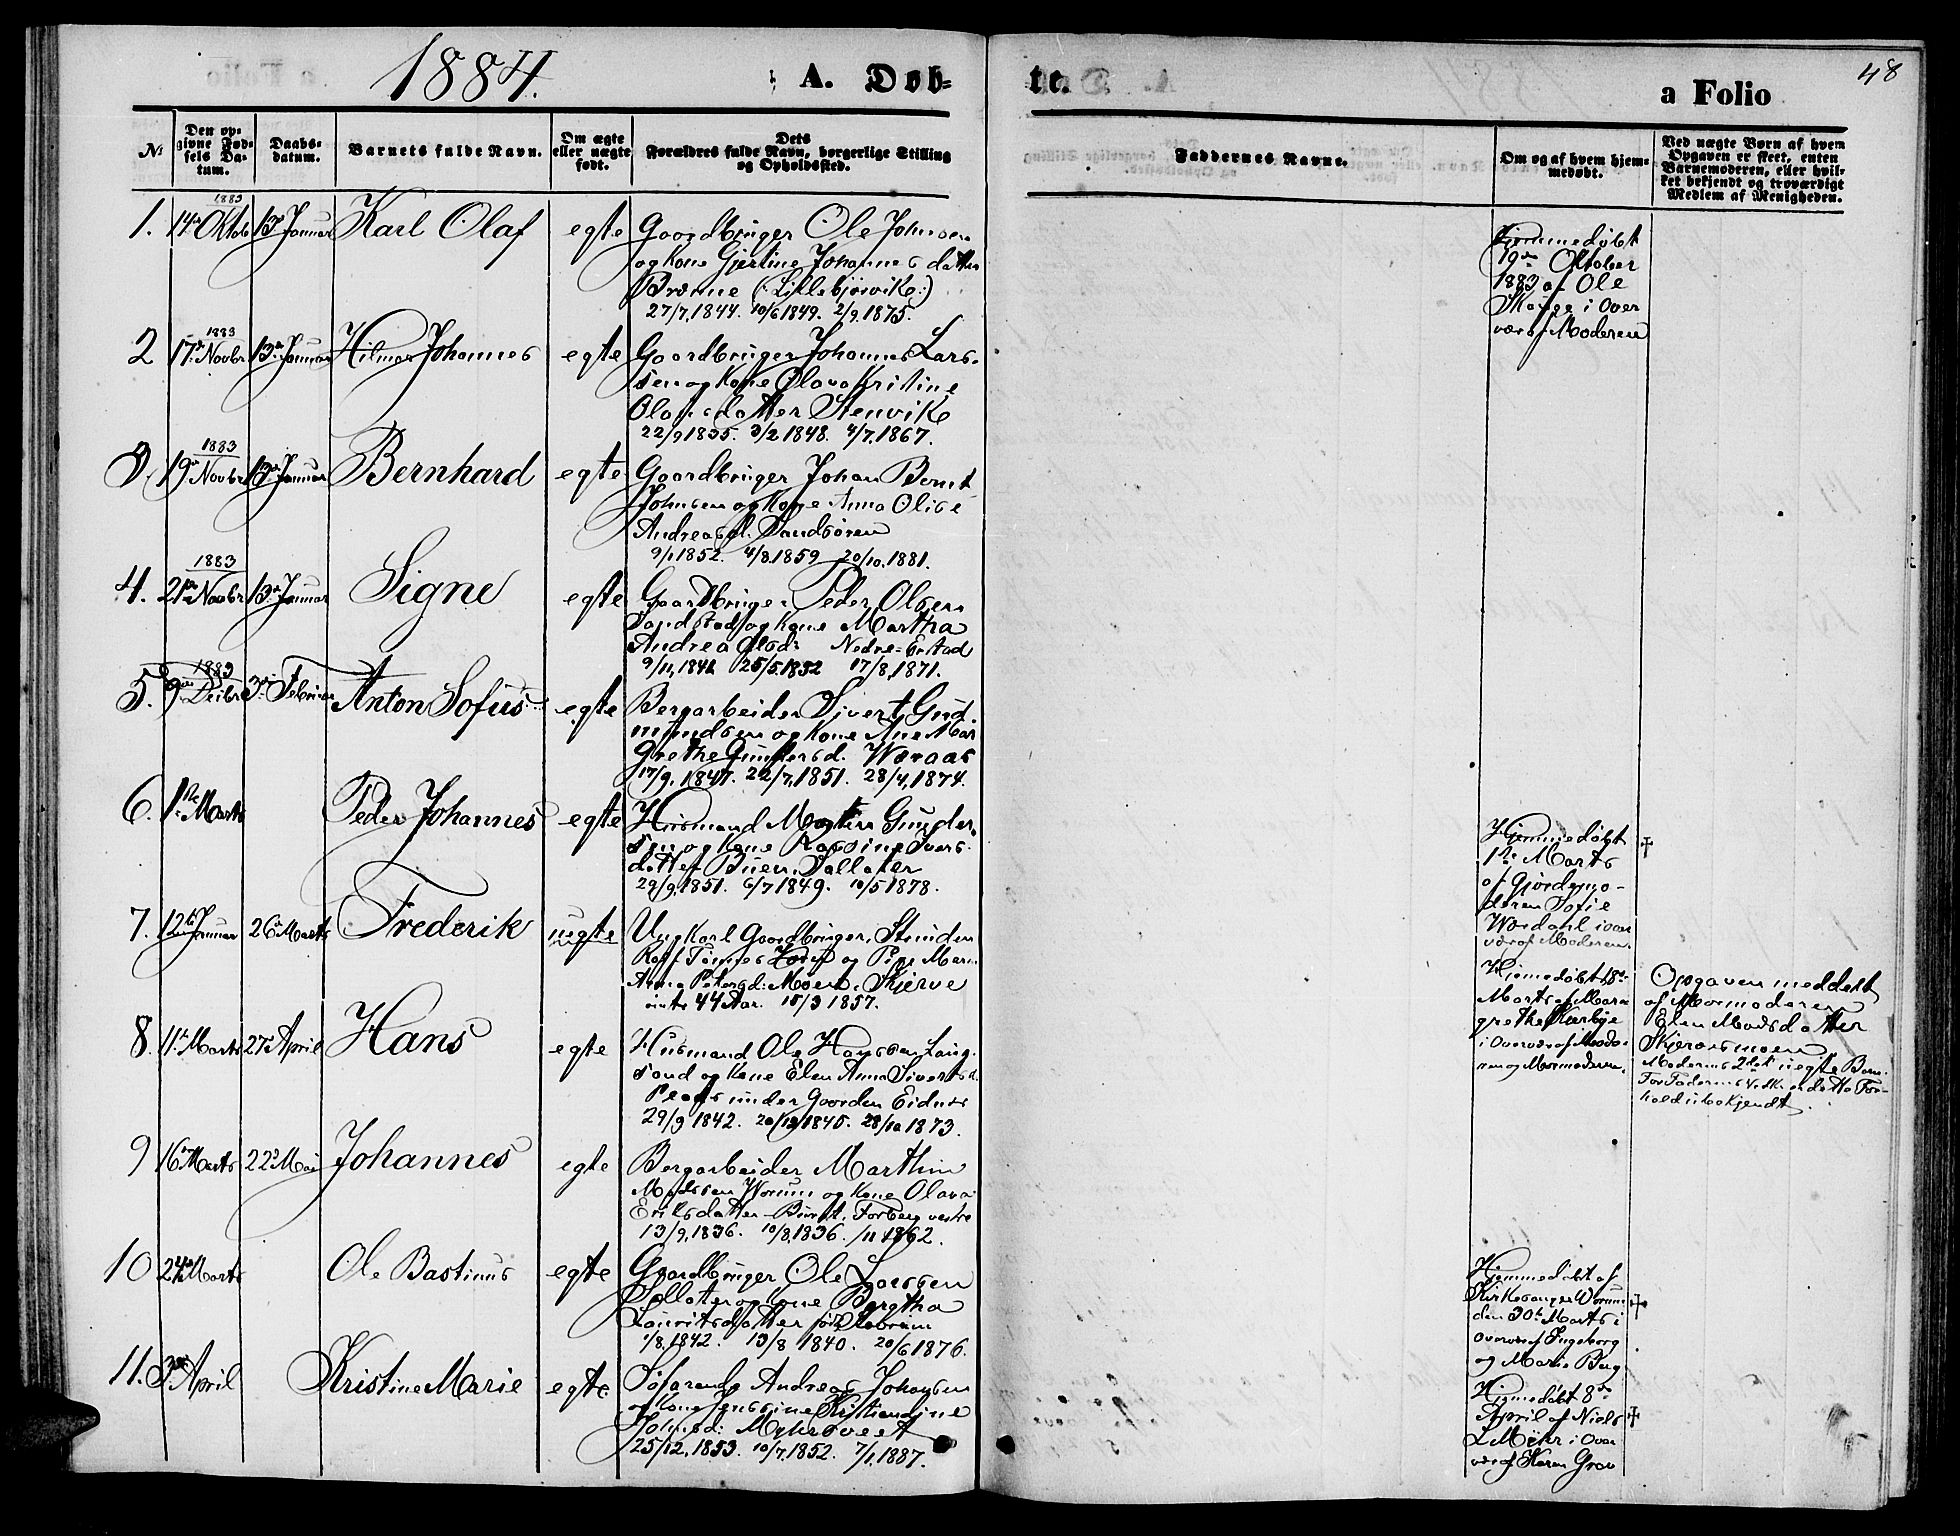 1884.
A. Døb-
te.
a Folio
48
No
Den op-
givne Fød-
sels Da-
tum.
Daabs-
datum.
Barnets fulde Navn.
Om ægte
eller uægte
født.
Dets
Forældres fulde Navn, borgerlige Stilling
og Opholdssted.
Faddernes Navne.
Om og af hvem hjem-
medøbt.
Ved uægte Børn af hvem
Opgaven er skeet, enten
Barnemoderen, eller hvil-
ket bekjendt og troværdigt
Medlem af Menigheden.
1883
1. 14de Oktob 13de Januar Karl Olaf egte Gaardbruger Ole Johnsen
og Kone Gjertine Johannesdatter
Brønne (: Lillebjørvik :)
27/7, 1844. 10/6 1849. 2/9, 1875.
Hjemmedøbt
19de Oktober
1883 af Ole
Skauge i Over
vær af Moderen
1883
2 17de Novbr 13de Januar Hilmar Johannes egte Gaardbruger Johannes Lars-
sen og Kone Olava Kristine
Olausdatter Stenvik
22/9 1835. 3/2 1848. 4/7, 1867.
1883
3. 19de Novbr 13de Januar Bernhard egte Gaardbruger Johan Bernt
Johnsen og Kone Anna Olise
Andreasd. Sandsøren
9/1, 1852. 4/8 1859 20/10, 1881.
1883
4. 21de Novbr 13de Januar Signe egte Gaardbruger Peder Olsen
Sandstad og Kone Martha
Andrea Olsd:
9/11, 1842 25/5 1832 17/8, 1871.
1883
5. 9de Decbr 3de Februar Anton Sofus egte Bergarbeider Sivert Gud
mundsen og Kone Ane Mar
Grethe Gundersd. Woraas
17/9, 1847. 22/7, 1851. 28/4, 1874.
6. 1ste Marts Peder Johannes egte Husmand Morten Gunder
sen og Kone Rassine Ivers-
datter Buen, Sollater
29/9, 1851. 6/7 1849. 10/5 1878.
Hjemmedøbt
1ste Marts
af Gjordemo-
deren Sofie
Wordahl i over
vær af Moderen.
7. 12te Januar 26de Marts Frederik uegte Ungkarl Gaardbruger, Student
Rolf Tønnes og Pige Maren
Anna Petersd: Moen, Skjerve
44 Aar. 15/3 1857.
Hjemedøbt 18de
Marts af Mar
grethe Kjerbye
i Overvær af Mode-
ren og Mormoderen.
Opgaven meddelt
af Mormoderen
Elen Madsdatter
Skjervesmoen
Moderens 2det uegte Barn.
For Faderens Vedk. er dette For-
hold ubekjendt.
8. 11te Marts 27de April Hans egte Husmand Ole Hanssen Lang-
sand og Kone Elen Anna Sivertsd.
Plads under Gaarden Eidnes
29/9 1842. 20/12 1840. 28/10 1873.
9 16de Marts 22de Mai Johannes egte Bergarbeider Marthin
Madssen Worum og Kone Olava
Eriksdatter Forberg vestre
13/9, 1836. 10/8, 1836. 1862.
10 24de Marts Ole Bastinus egte Gaardbruger Ole Larssen
Sollater og Kone Beretha
Lauritsdatter
1/8, 1842. 13/8 1840. 20/6 1876.
Hjemmedøbt af
Kirkesanger Worum
den 30te Marts i
overvær af Ingeborg
og Marie Berg.
11. 3de April Kristine Marie egte Søfarende Andreas Johansen
og Kone Jenssine Kristiandine
Johnsd:
25/12, 1853. 10/7, 1852. 7/1, 1887.
Hjemedøbt 8de
April af Niels
L Myhr i Over
vær af Karen Grav